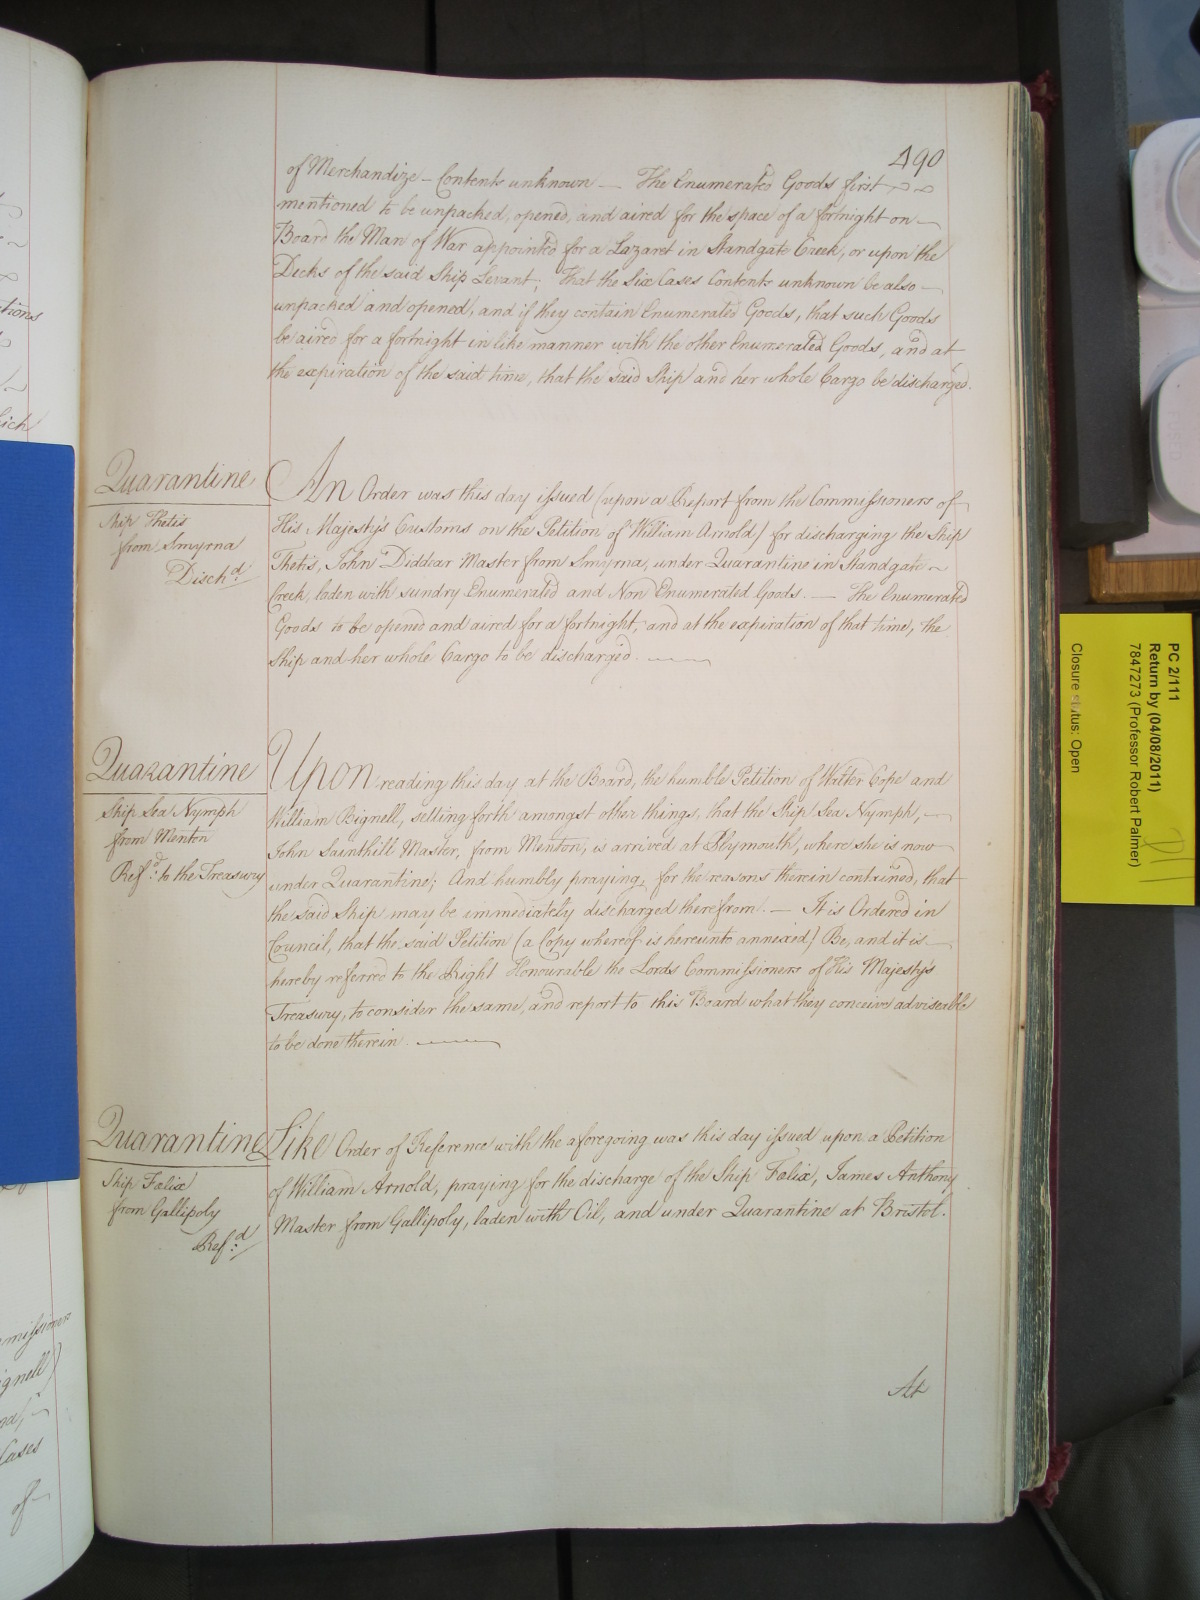 490
of Merchandize – Contents unknown — The Enumerated Goods first
mentioned to be unpacked, opened, and aired for the space of a fortnight on
Board the Man of War appointed for a Lazaret in Standgate Creek, or upon the
Decks of the said Ship Levant; That the Six Cases Contents unknown be also
unpacked and opened, and if they contain Enumerated Goods, that such Goods
be aired for a fortnight in like manner with the other Enumerated Goods, and at
the expiration of the said time, that the said Ship and her whole Cargo be discharged.
Quarantine
Ship Thetis
from Smyrna
Disch.d
An Order was this day issued (upon a Report from the Commissioners of
His Majesty's Customs on the Petition of William Arnold) for discharging the Ship
Thetis, John Diddear Master from Smyrna, under Quarantine in Standgate
Creek, laden with sundry Enumerated and Non Enumerated Goods. — The Enumerated
Goods to be opened and aired for a fortnight, and at the expiration of that time, the
Ship and her whole Cargo to be discharged.
Quarantine
Ship Sea Nymph
from Menton
Ref.d to the Treasury
Upon reading this day at the Board, the humble Petition of Walter Cope and
William Bignell, setting forth amongst other things, that the Ship Sea Nymph,
John Sainthill Master, from Menton, is arrived at Plymouth, where she is now
under Quarantine; And humbly praying, for the reasons therein contained, that
the said Ship may be immediately discharged therefrom. — It is Ordered in
Council, that the said Petition (a Copy whereof is hereunto annexed) Be, and it is
hereby referred to the Right Honourable the Lords Commissioners of His Majesty's
Treasury, to consider the same, and report to this Board what they conceive adviseable
to be done therein.
Quarantine
Ship Felix
from Gallipoly
Ref.d
Like Order of Reference with the aforegoing was this day issued upon a Petition
of William Arnold, praying for the discharge of the Ship Felix, James Anthony
Master from Gallipoly, laden with Oil, and under Quarantine at Bristol.
At
PC 2/111
Return by (04/08/2011)
7847273 (Professor Robert Palmer)
Closure status: Open